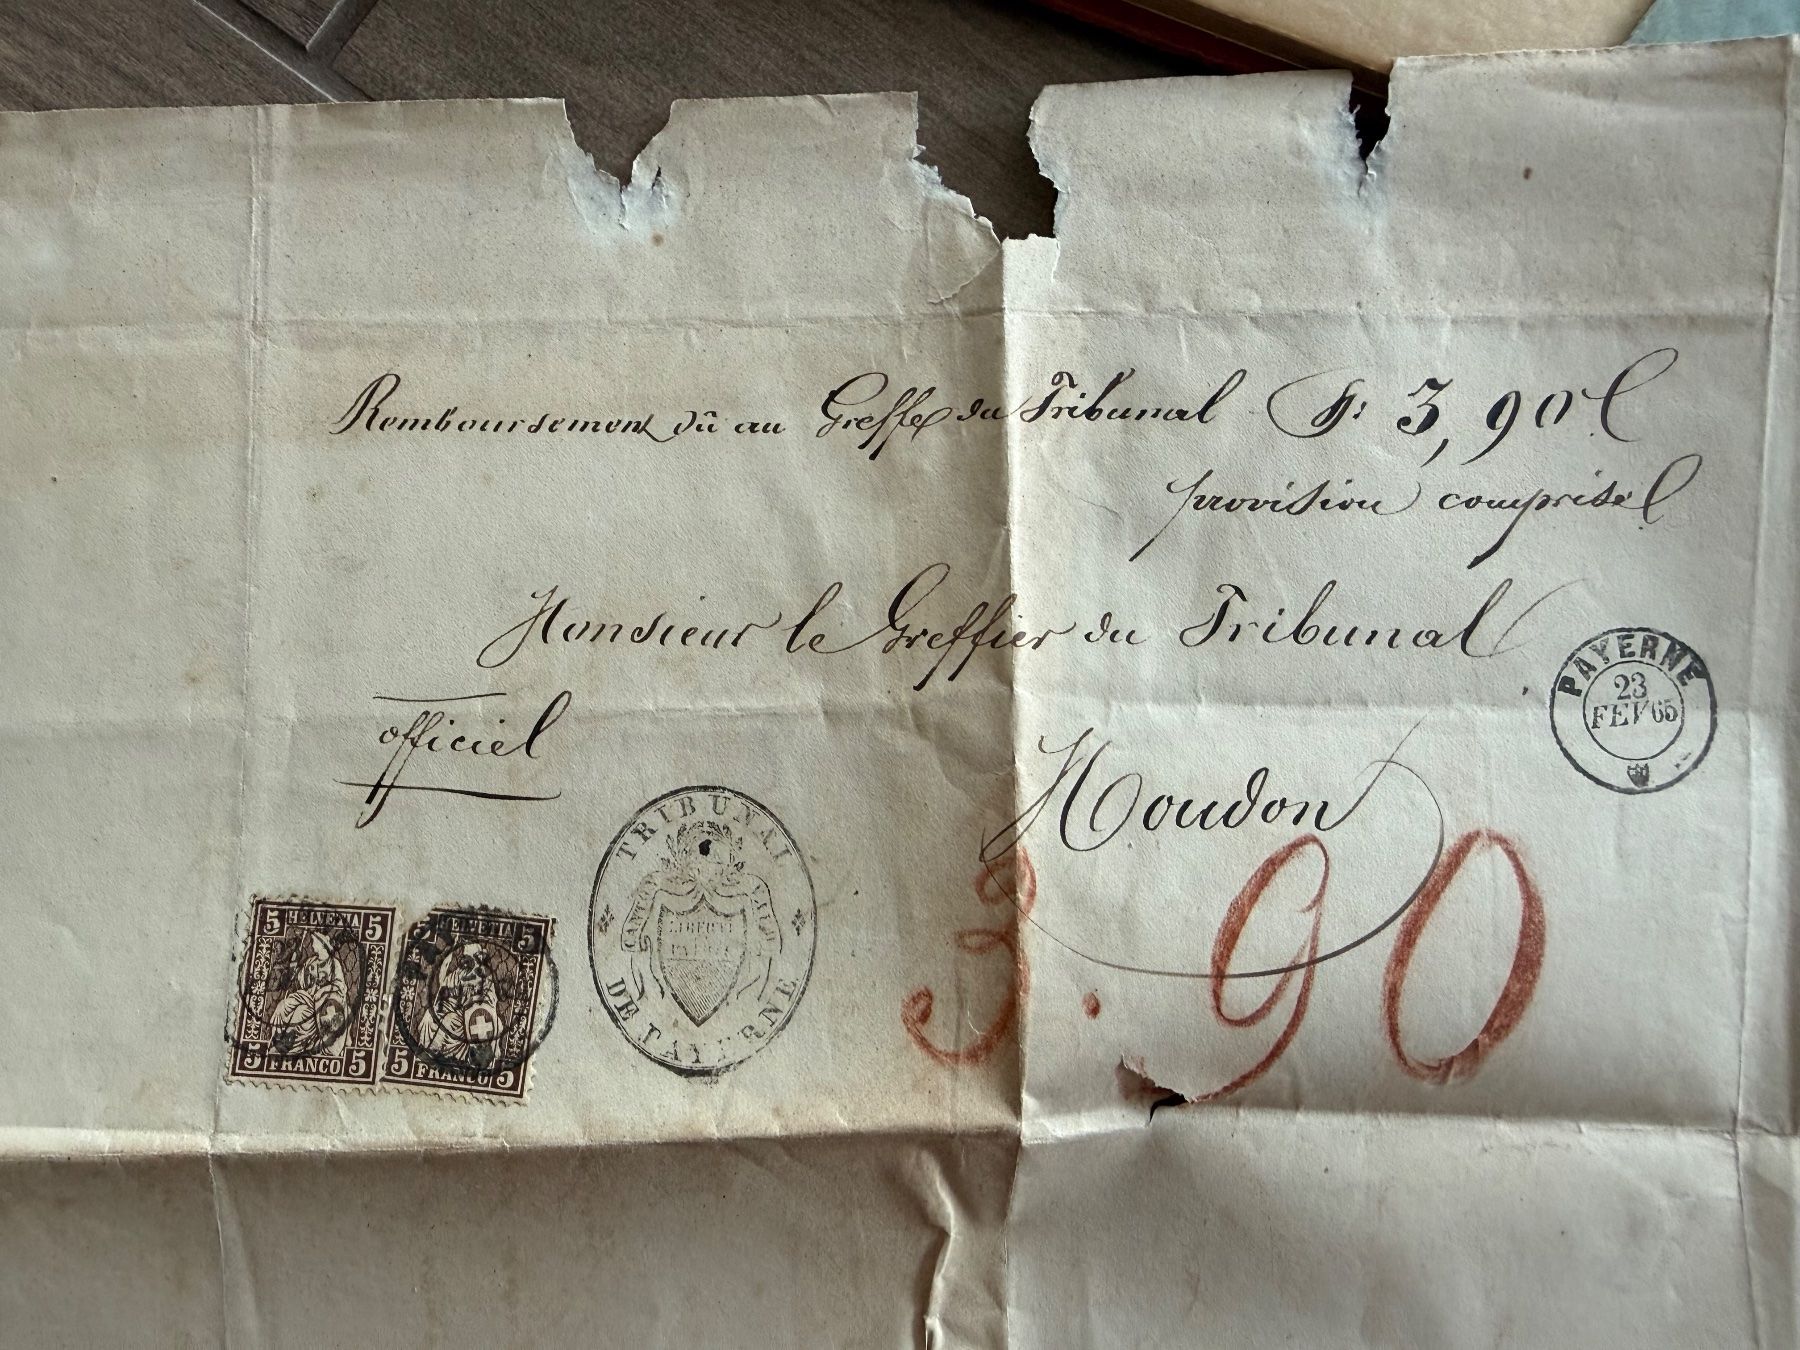 Remboursement dû au Greffe du Tribunal fr: 3,90
provision comprise
Monsieur le Greffier du Tribunal
officiel
Moudon
PAYERNE
23
FEV 65
TRIBUNAL
CANTON VAUD
LIBERTÉ
PATRIE
DE PAYERNE
3.90
5 HELVETIA 5
5 FRANCO 5
5 HELVETIA 5
23
5 FRANCO 5